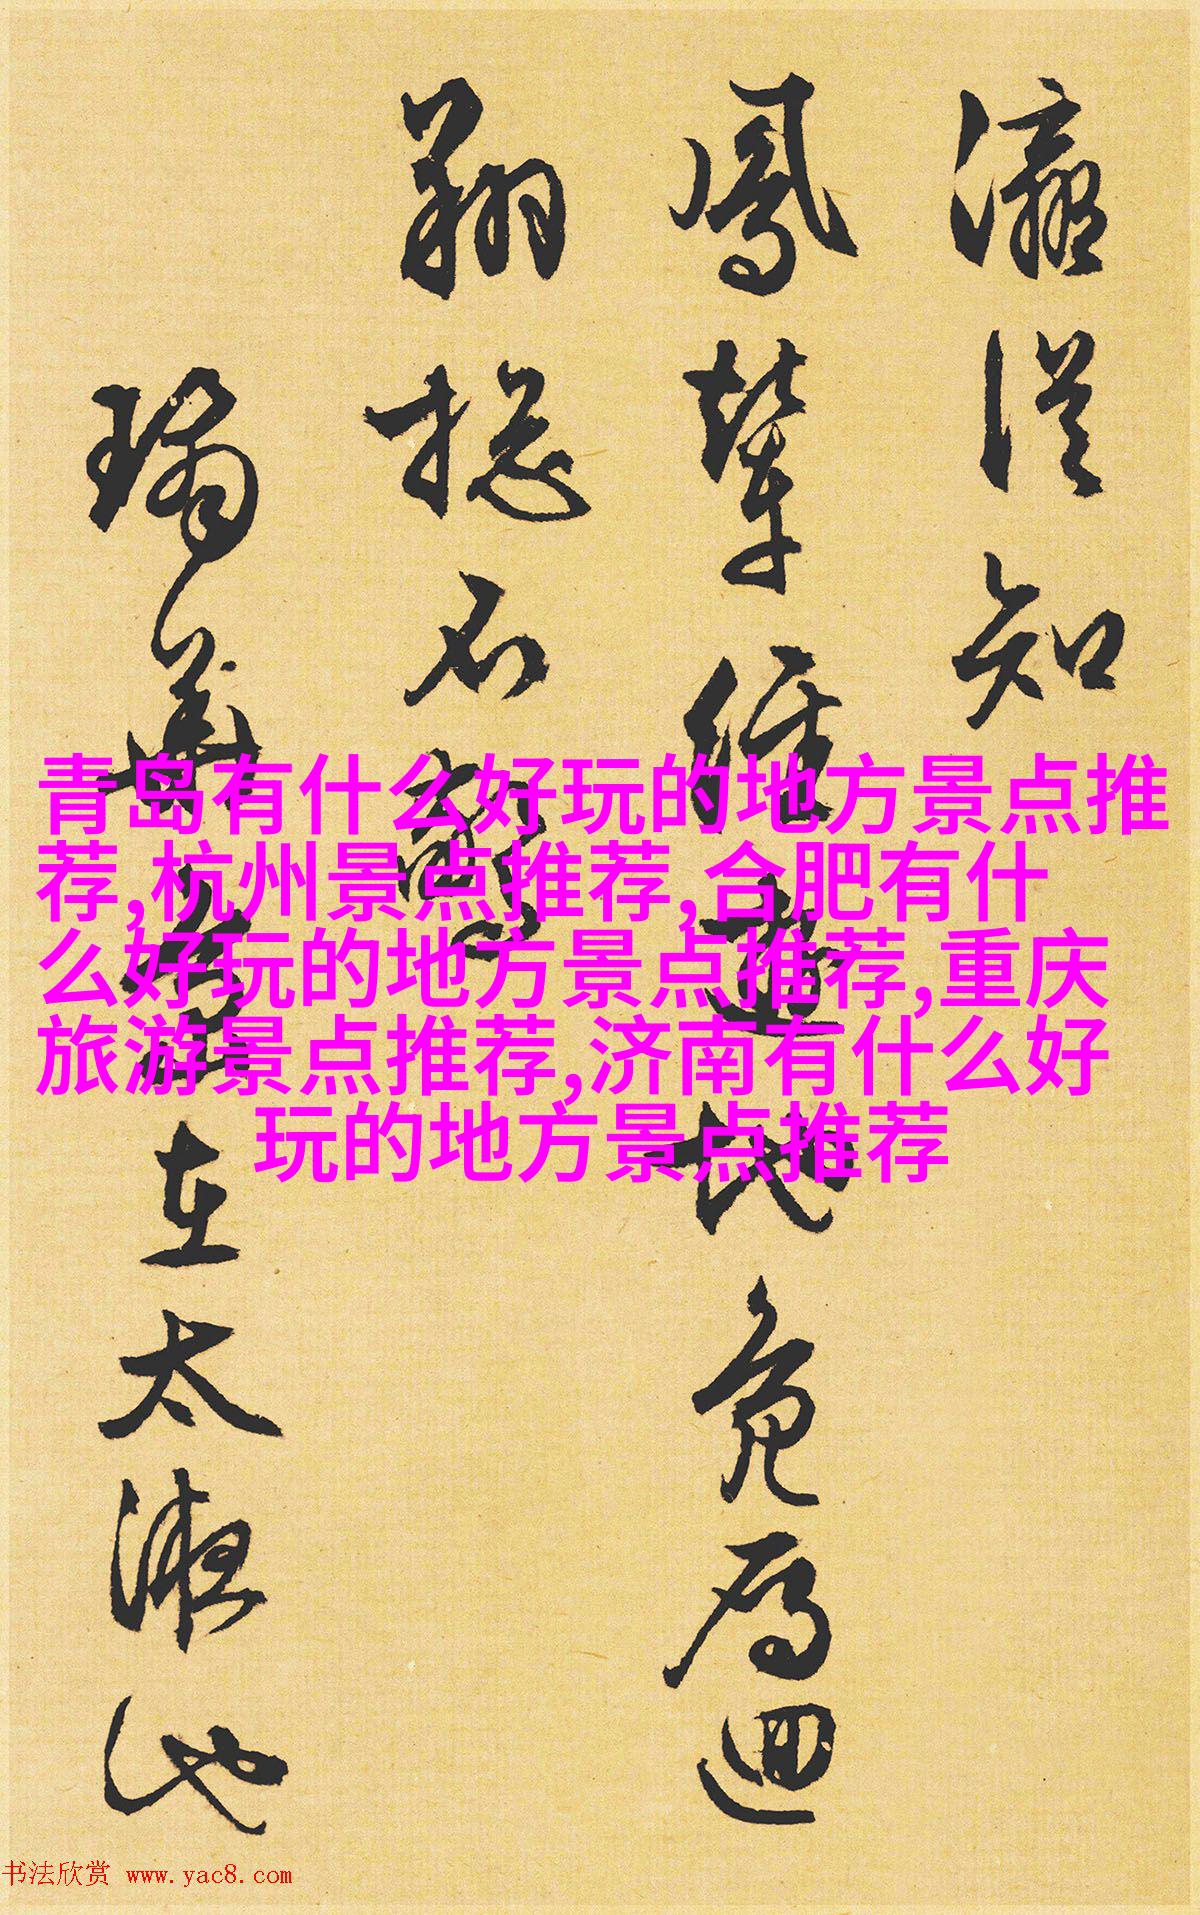 瀛從知
鳳輦經遊地鳧雁迴
翔總不驚
瓊華島在太液池
青岛有什么好玩的地方景点推
荐,杭州景点推荐,合肥有什
么好玩的地方景点推荐,重庆
旅游景点推荐,济南有什么好
玩的地方景点推荐
书法欣赏 www.yac8.com